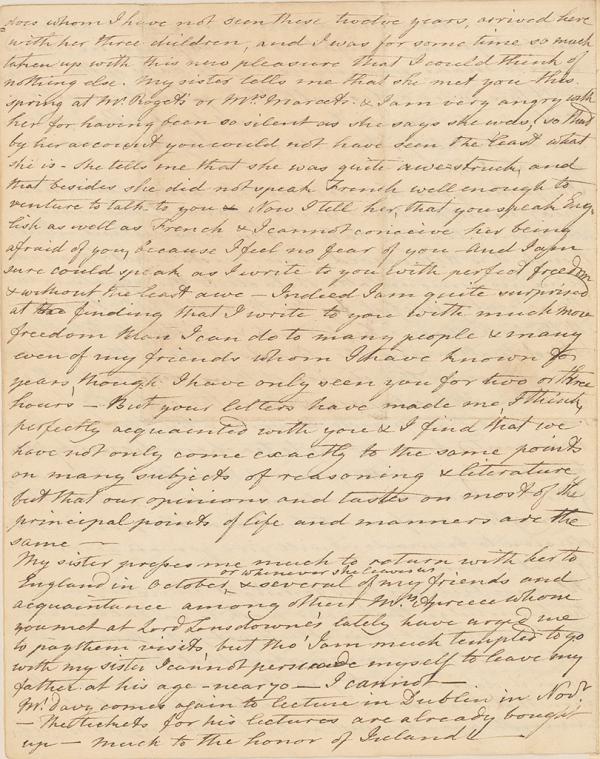 does whom I have not seen these twelve years, arrived here
with her three children, and I was for some time so much
taken up with this new pleasure that I could think of
nothing else. My sister tells me that she met you this
spring at Mr. Roget's or Mrs. Marcet's & I am very angry with
her for having been so silent as she says she was, so that
by her account you could not have seen the least what
she is - She tells me that she was quite awe-struck, and
that besides she did not speak French well enough to
venture to talk to you & Now I tell her, that you speak Eng-
lish as well as French & I cannot conceive her being
afraid of you, because I feel no fear of you - and I am
sure could speak as I write to you with perfect freedom
& without the least awe - Indeed I am quite surprised
at the finding that I write to you with much more
freedom than I can do to many people & many
even of my friends whom I have known for
years, though I have only seen you for two or three
hours - But your letters have made me, I think,
perfectly acquainted with you & I find that we
have not only come exactly to the same points
on many subjects of reasoning & literature
but that our opinions and tastes on most of the
principal points of life and manners are the
same -
My sister presses me much to return with her to
or whenever she leaves us
England in October, & several of my friends and
acquaintance among others Mrs. Apreece whom
you met at Lord Lansdowne's lately have urged me
to pay them visits but tho' I am much tempted to go
with my sister I cannot persuade myself to leave my
father at his age - near 70 - I cannot -
Mr. Davy comes again to lecture in Dublin in Novr.
- The tickets for his lectures are already bought
up - much to the honor of Ireland